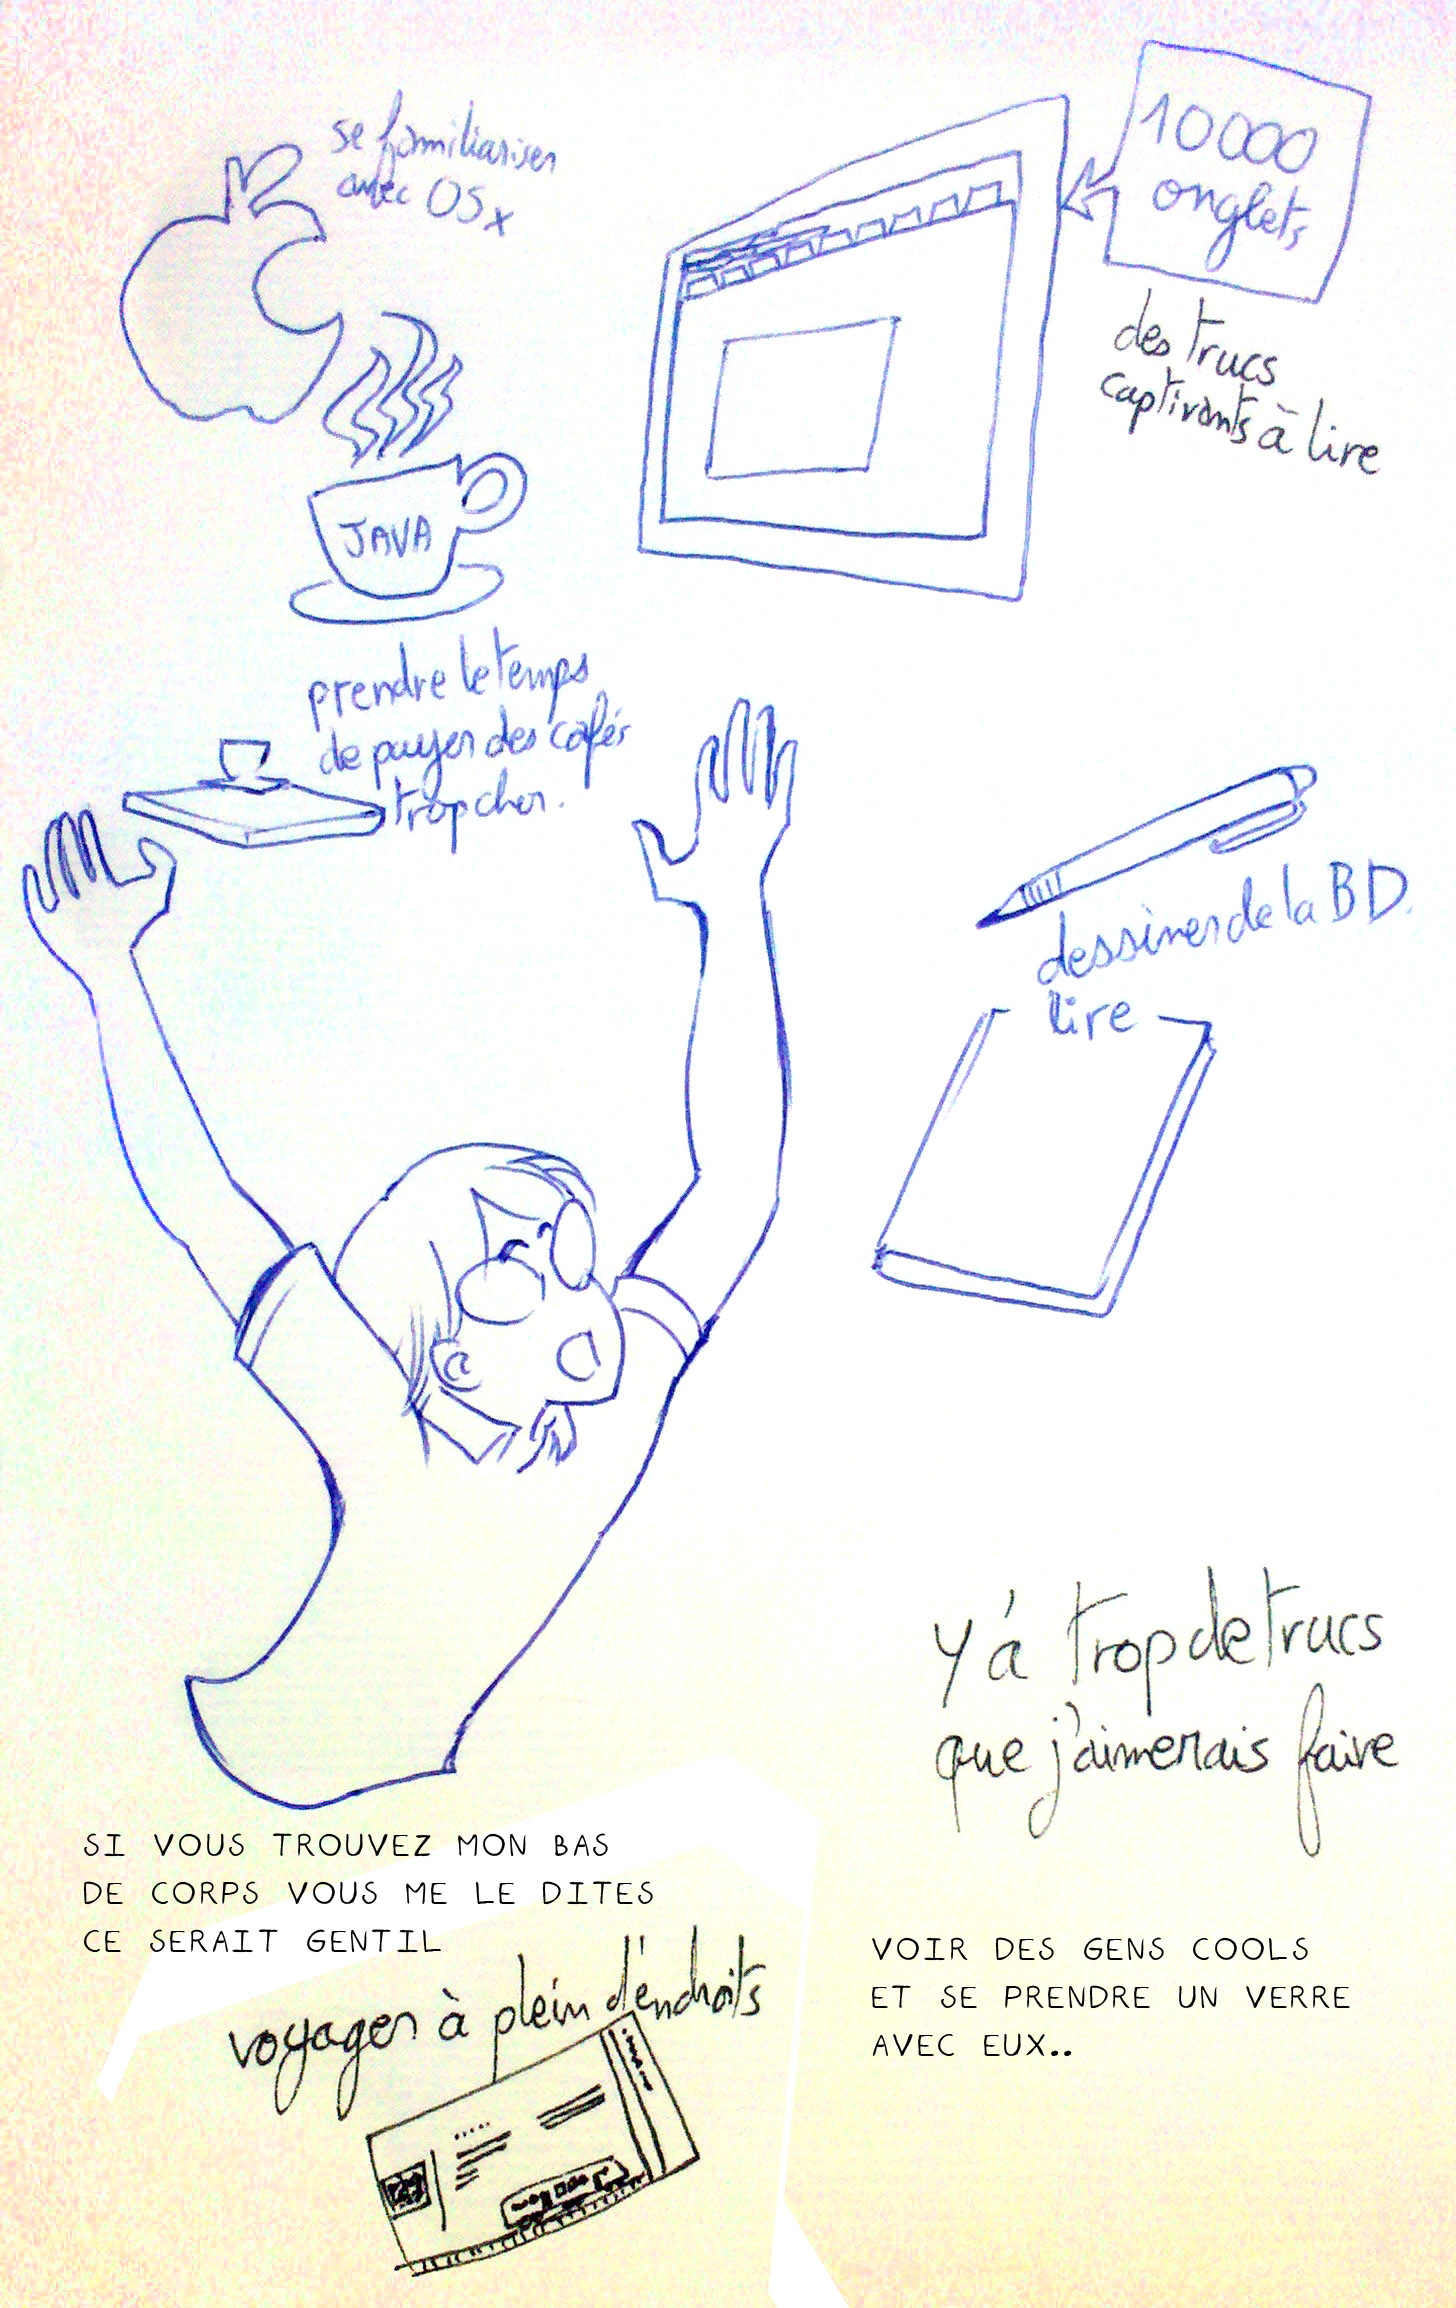 se familiariser
avec OSx
10000
onglets
des trucs
captivants à lire
JAVA
prendre le temps
de payer des cafés
trop cher.
dessiner de la BD.
lire
y'á trop de trucs
que j'aimerais faire
SI VOUS TROUVEZ MON BAS
DE CORPS VOUS ME LE DITES
CE SERAIT GENTIL
voyager à plein d'endroits
VOIR DES GENS COOLS
ET SE PRENDRE UN VERRE
AVEC EUX..